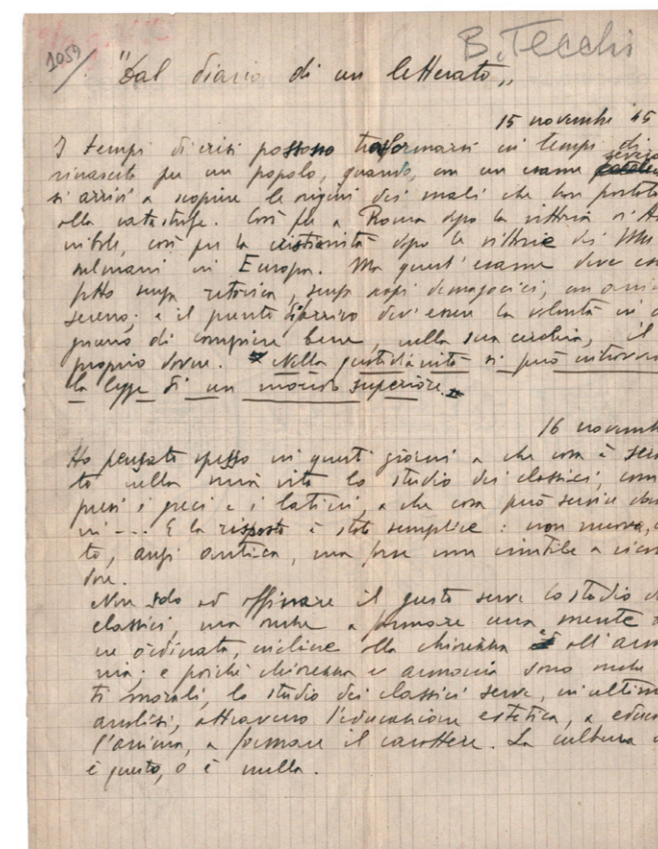 1059/
B. Tecchi
"Dal diario di un letterato"
15 novembre 45
I tempi di crisi possono trasformarsi in tempi di
rinascita per un popolo, quando, con un esame severo
si arrivi a scoprire le origini dei mali che han portato
alla catastrofe. Così fu a Roma dopo la vittoria d'An
nibale, così per la cristianità dopo le vittorie dei Mu
sulmani in Europa. Ma quest'esame deve ess
fatto senza retorica, senza scopi demagogici, con animo
sereno; e il punto d'arrivo dev'essere la volontà in
gnuno di compiere bene, nella sua cerchia, il
proprio dovere. Nella quotidianità si può ritrovare
la legge di un mondo superiore.
16 novemb
Ho pensato spesso in questi giorni a che cosa è servi
to nella mia vita lo studio dei classici, com
presi i greci e i latini, a che cosa può servire
... E la risposta è stata semplice: non nuova,
to, anzi antica, ma forse non inutile a
dare.
Non solo ad affinare il gusto serve lo studio d
classici ma anche a formare una mente
ordinata, incline alla chiarezza all'armo
nia; e poiché chiarezza e armonia sono anche
ti morali, lo studio dei classici serve, in ultima
analisi, attraverso l'educazione estetica, a educa
l'anima, a formare il carattere. La cultura
è questo, o è nulla.